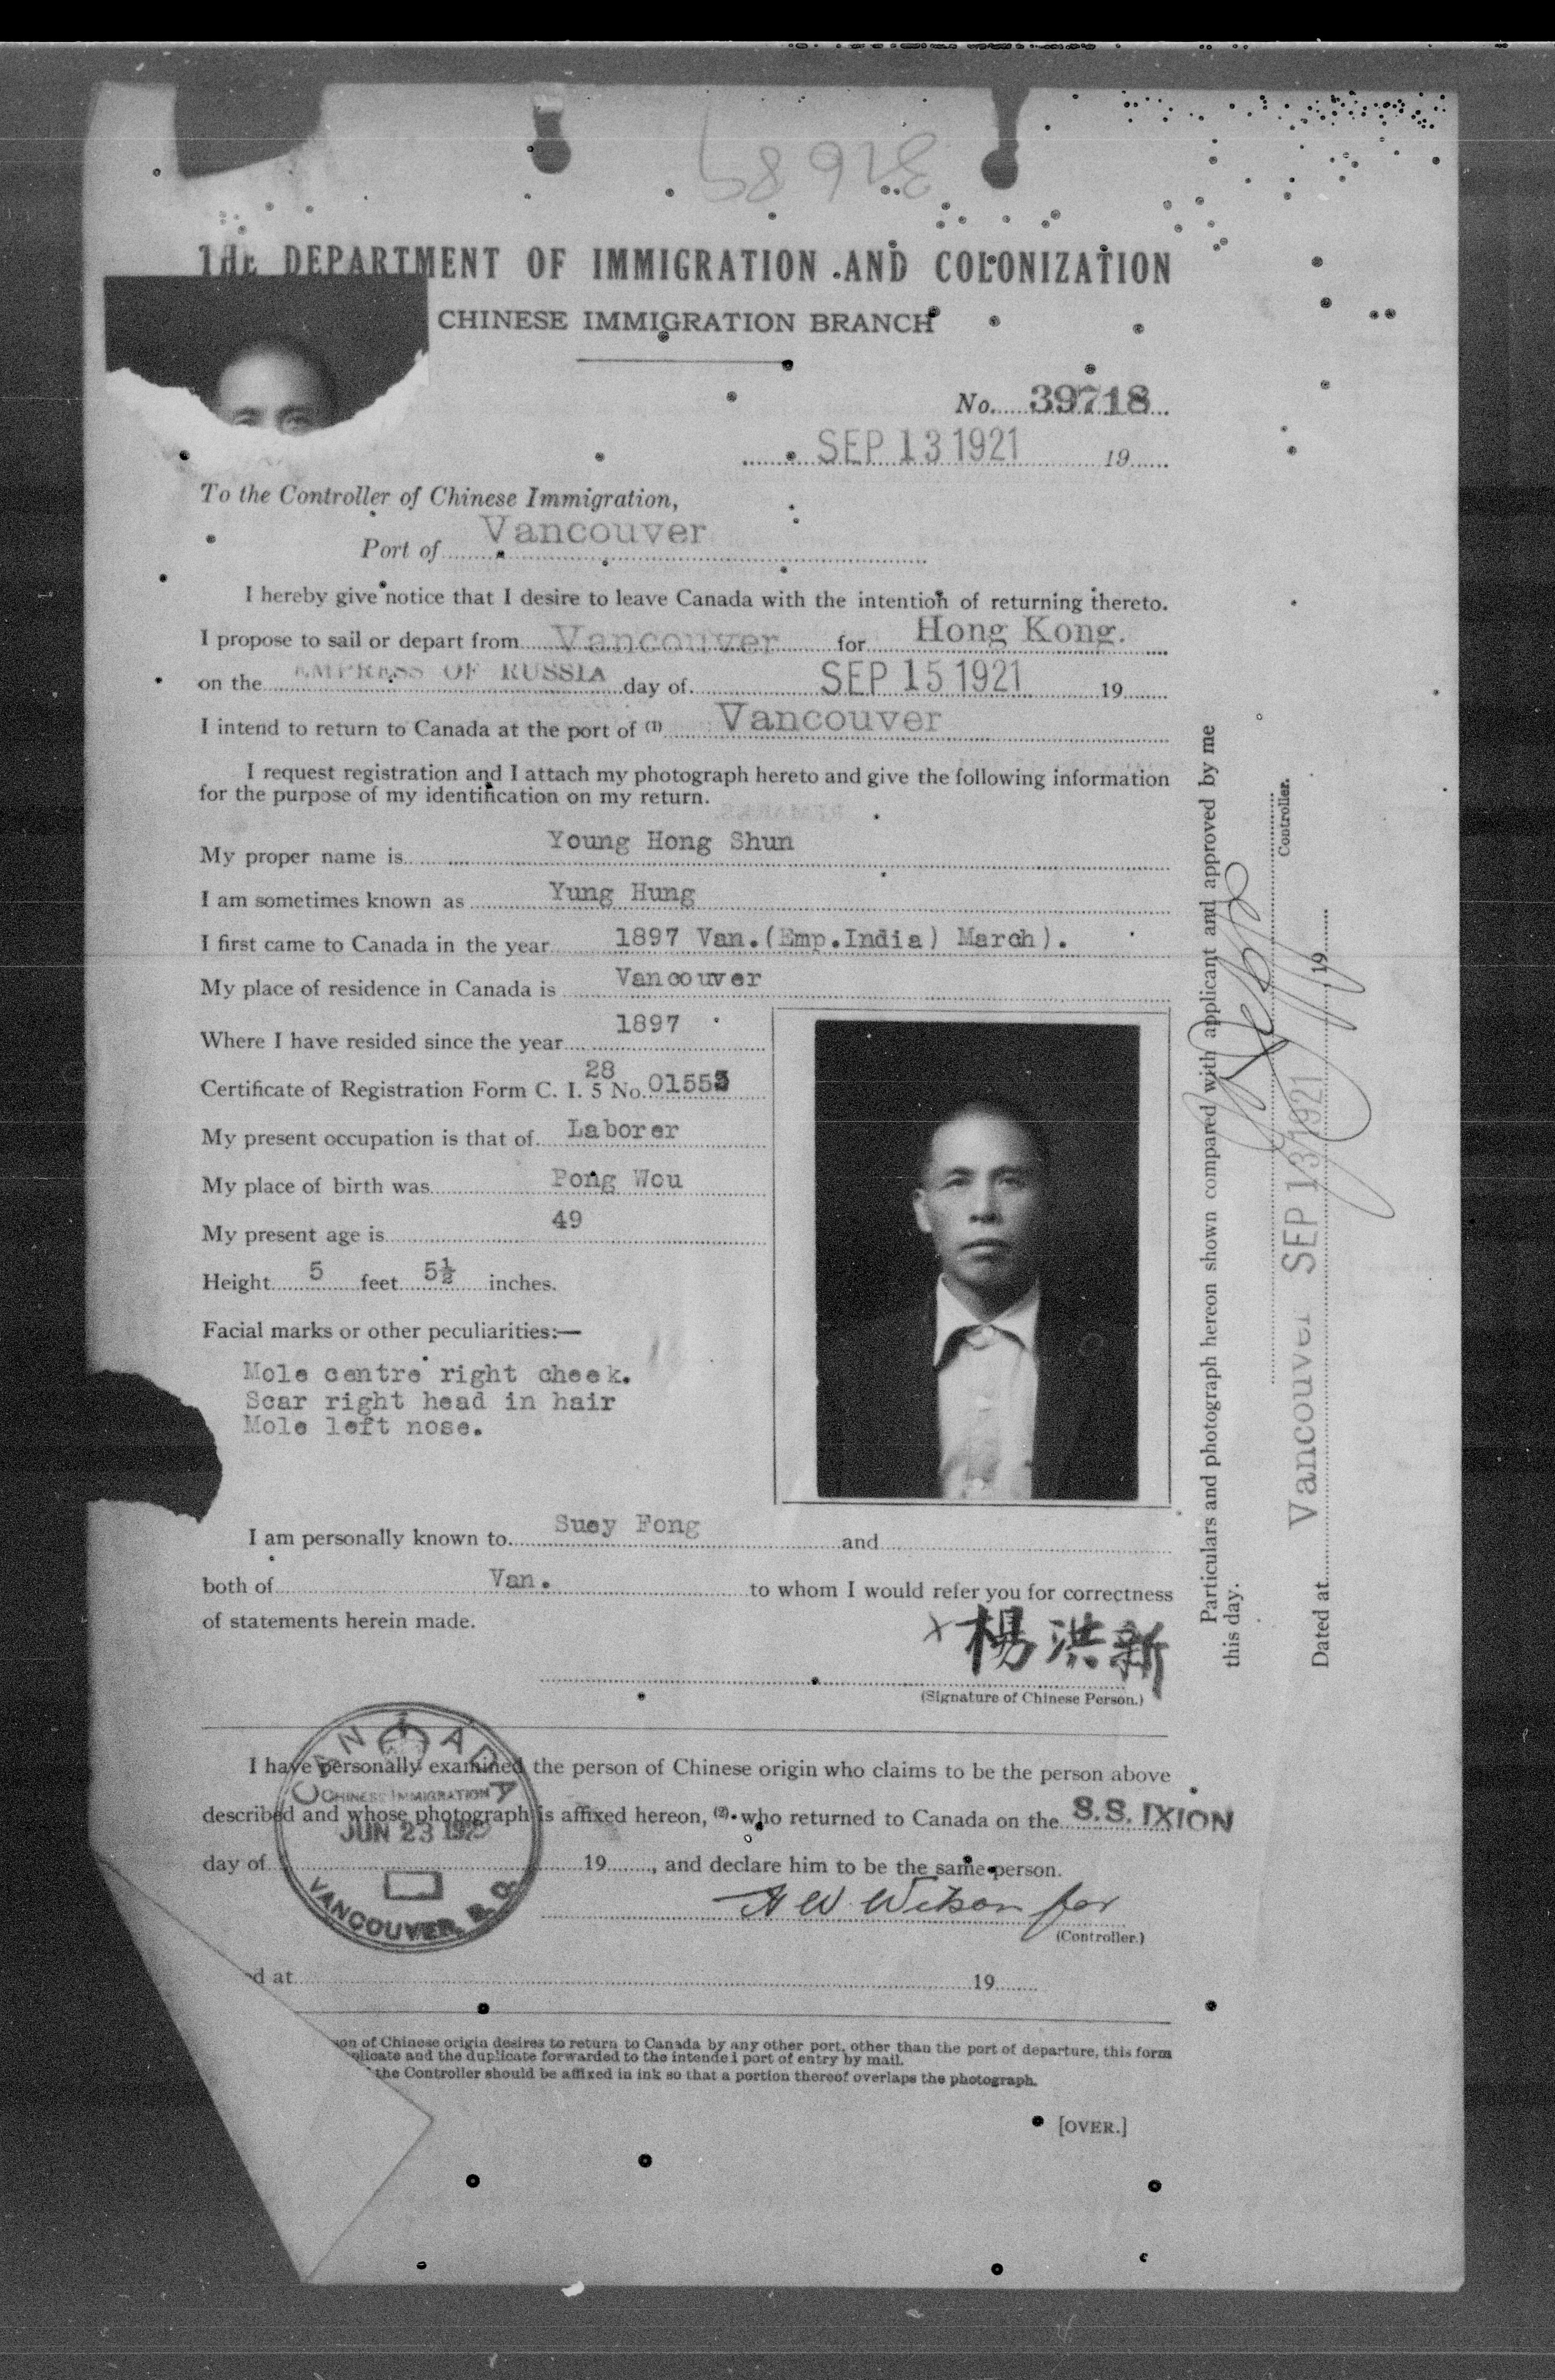 31689
THE DEPARTMENT OF IMMIGRATION AND COLONIZATION
CHINESE IMMIGRATION BRANCH
No. 39718
SEP 13 1921 19
To the Controller of Chinese Immigration,
Port of Vancouver
I hereby give notice that I desire to leave Canada with the intention of returning thereto.
I propose to sail or depart from Vancouver for Hong Kong.
on the EMPRESS OF RUSSIA day of SEP 15 1921 19
I intend to return to Canada at the port of (1) Vancouver
I request registration and I attach my photograph hereto and give the following information
for the purpose of my identification on my return.
My proper name is Young Hong Shun
I am sometimes known as Yung Hung
I first came to Canada in the year 1897 Van.(Emp.India) March).
My place of residence in Canada is Vancouver
Where I have resided since the year 1897
28
Certificate of Registration Form C. I. 5 No. 01553
My present occupation is that of Laborer
My place of birth was Pong Wou
My present age is 49
Height 5 feet 5½ inches.
Facial marks or other peculiarities:—
Mole centre right cheek.
Scar right head in hair
Mole left nose.
I am personally known to Suey Fong and
both of Van. to whom I would refer you for correctness
of statements herein made.
x 楊洪新
(Signature of Chinese Person.)
I have personally examined the person of Chinese origin who claims to be the person above
described and whose photograph is affixed hereon, (2) who returned to Canada on the S.S. IXION
day of 19, and declare him to be the same person.
CANADA
CHINESE IMMIGRATION
JUN 23 192
VANCOUVER, B.C.
H W Wilson for
(Controller.)
ed at 19
son of Chinese origin desires to return to Canada by any other port, other than the port of departure, this form
plicate and the duplicate forwarded to the intended port of entry by mail.
the Controller should be affixed in ink so that a portion thereof overlaps the photograph.
[OVER.]
Particulars and photograph hereon shown compared with applicant and approved by me
this day.
Controller.
Dated at Vancouver SEP 13 1921 19